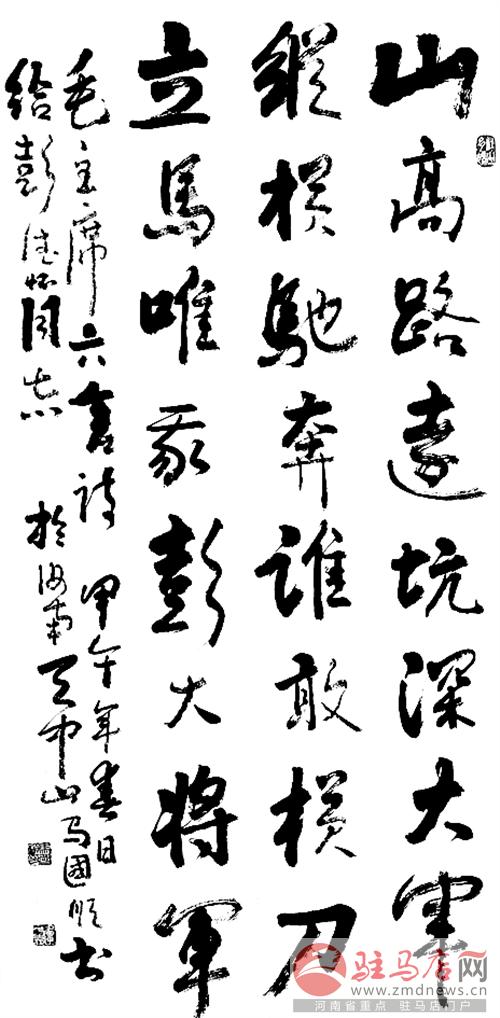 山高路遠坑深大軍
縱横馳奔誰敢横刀
立馬唯我彭大將軍
毛主席六言詩 甲午年春日
给彭德怀同志 於海南天中山馬國順書
驻马店网
www.zmdnews.cn
河南省重点 驻马店门户